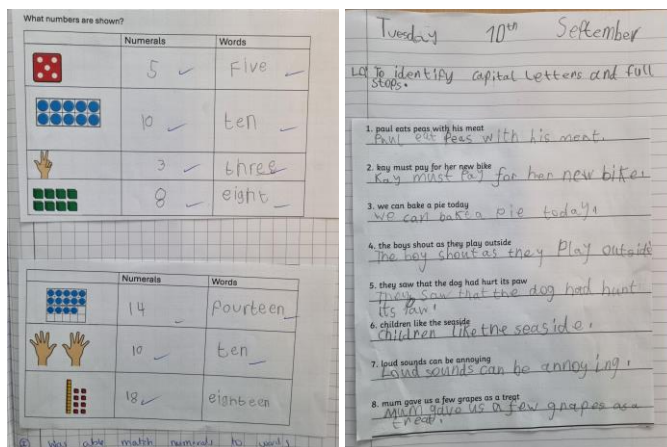 What numbers are shown?
Numerals Words
5 Five
10 ten
3 three
8 eight
Numerals Words
14 pourteen
10 ten
18 eighteen
was able match numerals to words
Tuesday 10th September
LO: To identify capital letters and full
stops.
1. paul eats peas with his meat
Paul eat Peas with his meat.
2. kay must pay for her new bike
Kay must Pay for her new bike.
3. we can bake a pie today
we can bake a pie today.
4. the boys shout as they play outside
The boy shout as they Play outside
5. they saw that the dog had hurt its paw
They saw that the dog had hunt
its Paw.
6. children like the seaside
children like the seaside.
7. loud sounds can be annoying
Loud sounds can be annoying.
8. mum gave us a few grapes as a treat
Mum gave us a few grapes as a
treat.